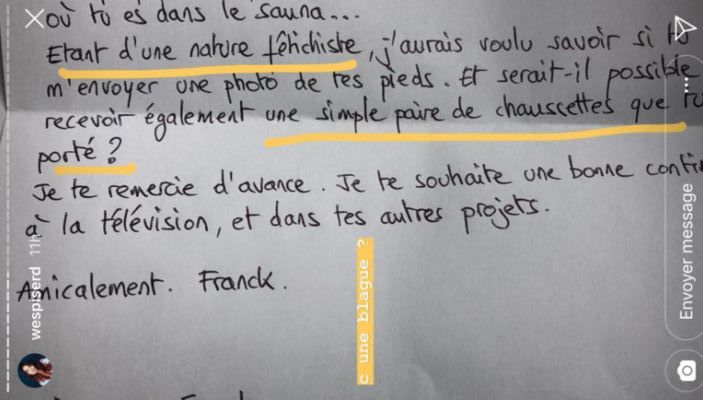 où tu es dans le sauna...
Etant d'une nature fétichiste, j'aurais voulu savoir si tu
m'envoyer une photo de tes pieds. Et serait-il possible
recevoir également une simple paire de chauscettes que tu
porté ?
Je te remercie d'avance. Je te souhaite une bonne
à la télévision, et dans tes autres projets.
Amicalement. Franck.
c une blague ?
wespiserd 11h
Envoyer message